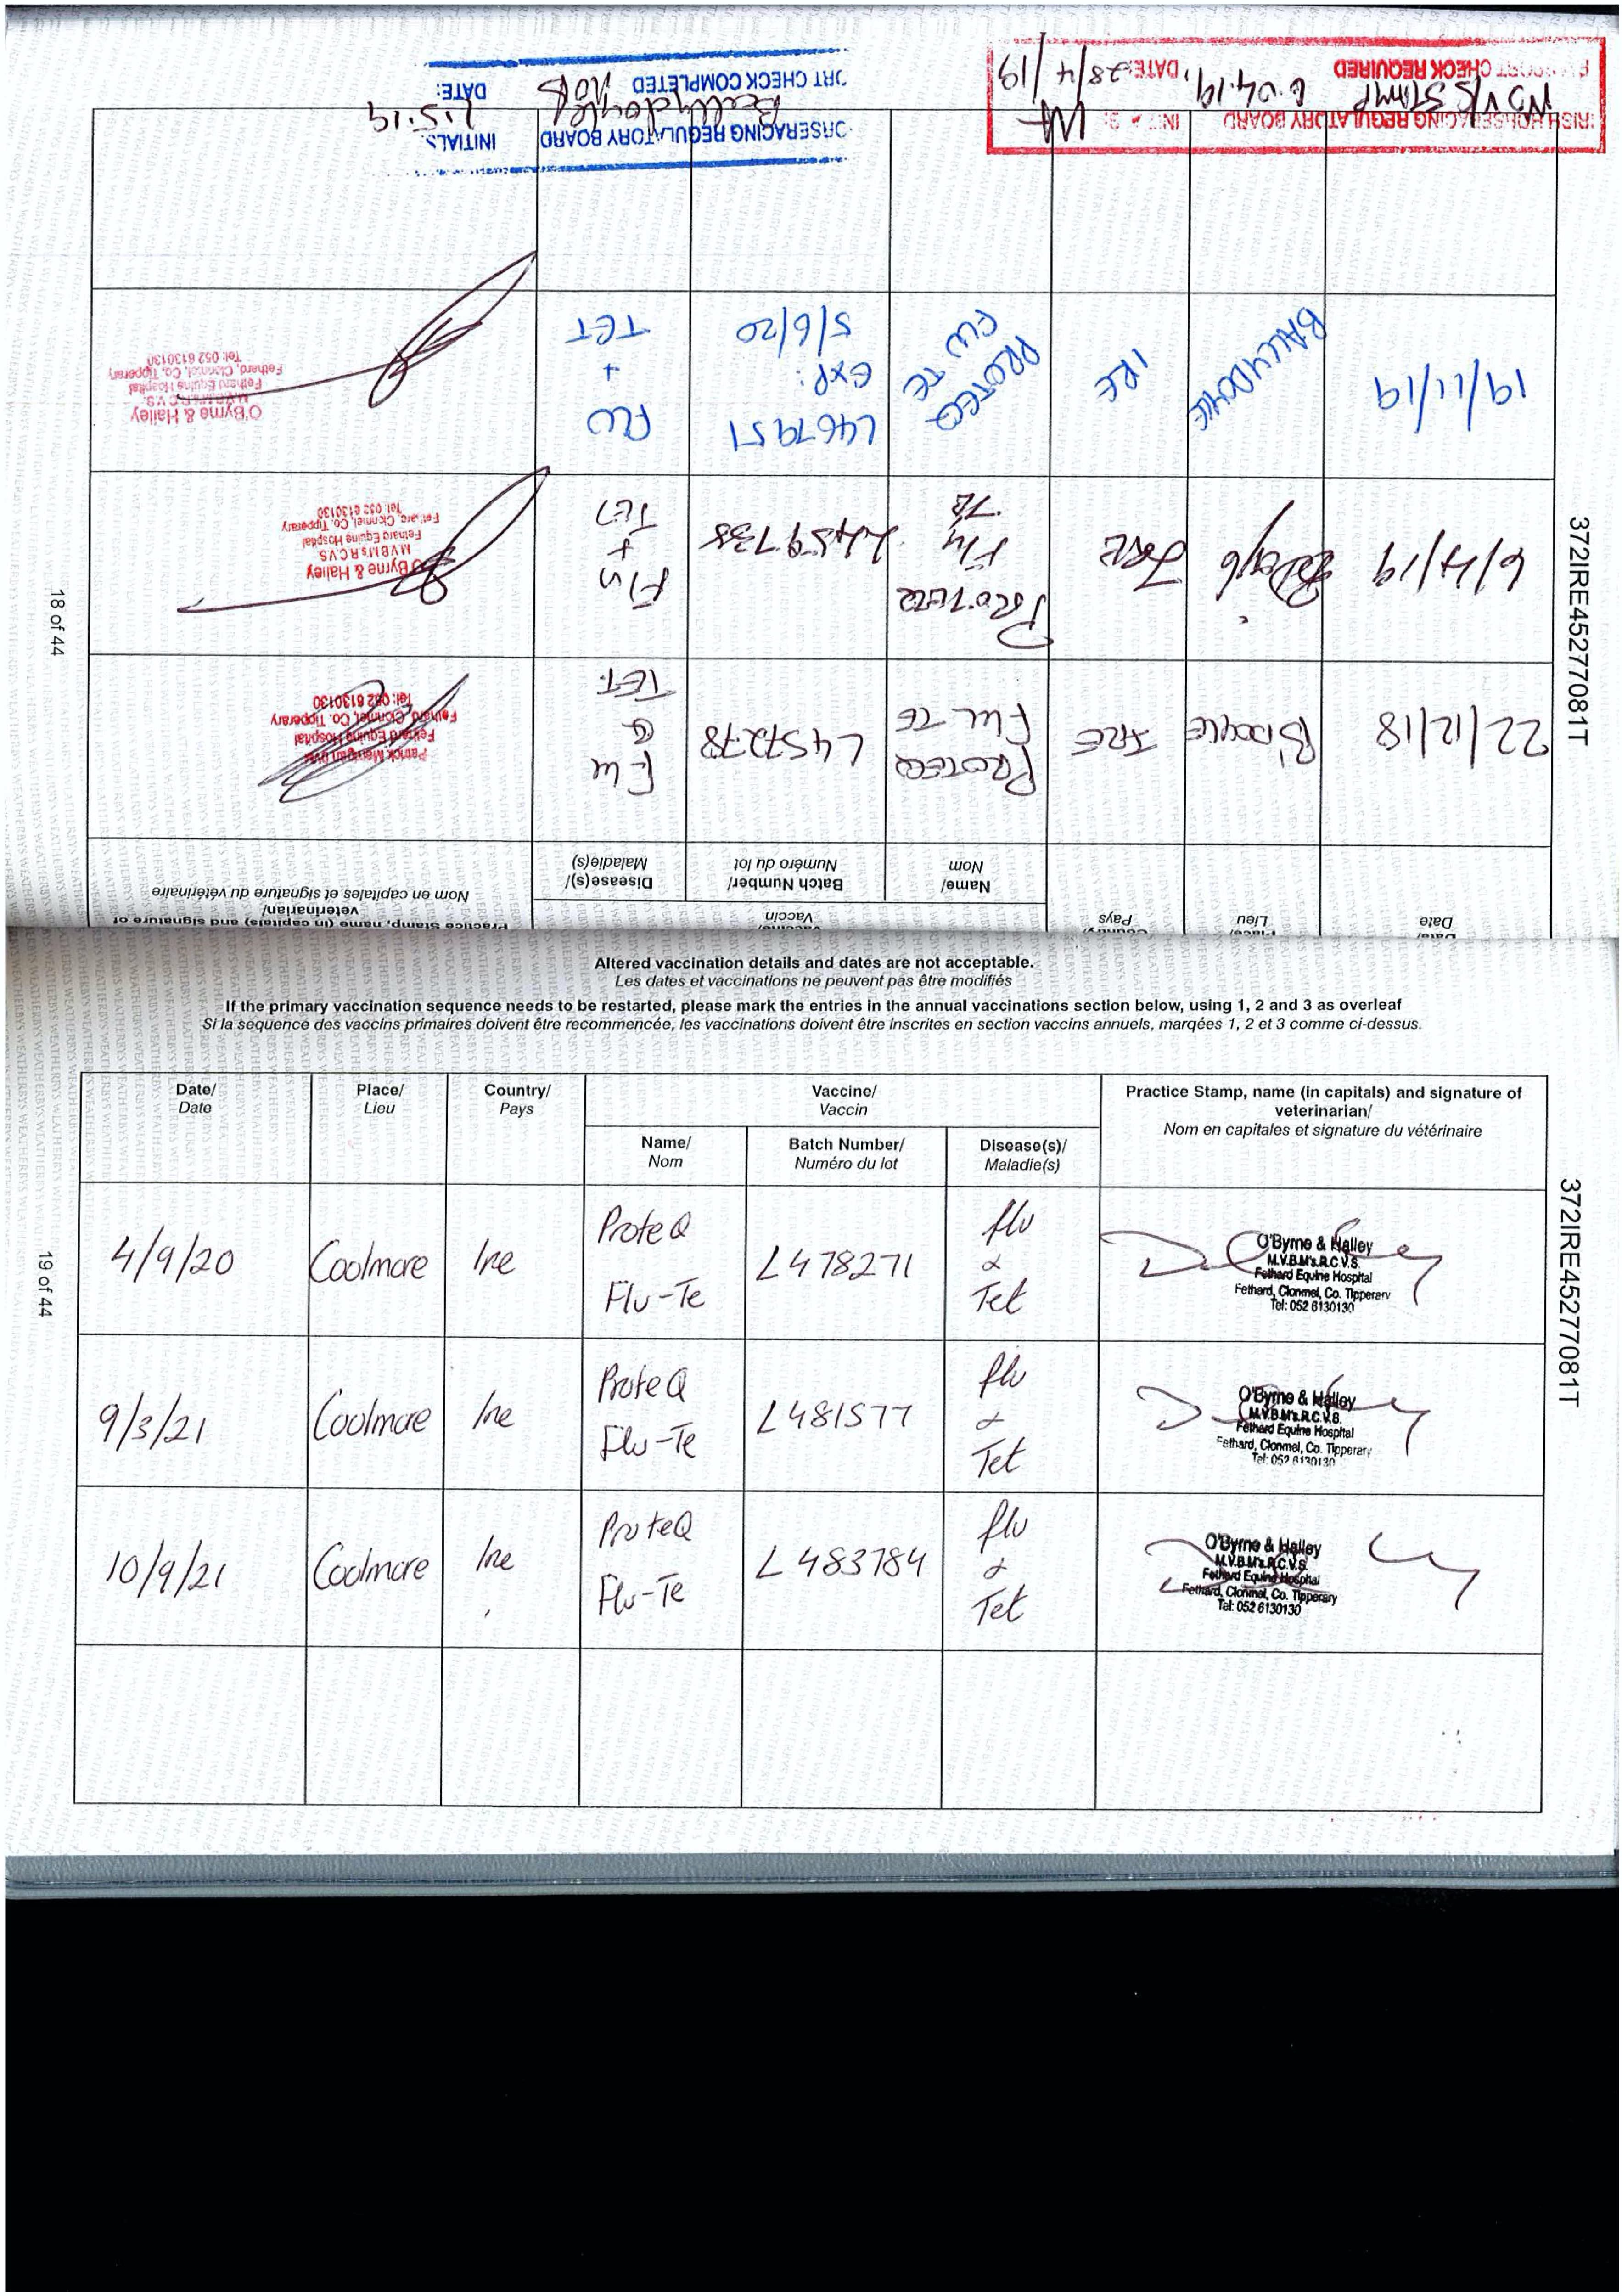 Date/ Date
Place/ Lieu
Country/ Pays
Vaccine/ Vaccin
Name/ Nom
Batch Number/ Numéro du lot
Disease(s)/ Maladie(s)
Practice Stamp, name (in capitals) and signature of
veterinarian/
Nom en capitales et signature du vétérinaire
22/12/18
B'DOYLE
IRE
PROTEQ
FLU TE
L457278
Flu
&
TET
Patrick
Fethard Equine Hospital
Fethard, Clonmel, Co. Tipperary
Tel: 052 6130130
6/4/19
IRE
PROTEQ
Flu
TE
L459738
Flu
+
TET
O'Byrne & Halley
M.V.B.M's R.C.V.S.
Fethard Equine Hospital
Fethard, Clonmel, Co. Tipperary
Tel: 052 6130130
19/11/19
BALLYDOYLE
IRE
PROTEQ
FLU TE
L467951
EXP:
5/6/20
FLU
+
TET
O'Byrne & Halley
M.V.B.M's R.C.V.S.
Fethard Equine Hospital
Fethard, Clonmel, Co. Tipperary
Tel: 052 6130130
IRISH HORSERACING REGULATORY BOARD
NO V/S STAMP 6.04.19
PASSPORT CHECK REQUIRED DATE: 28/4/19
ORSERACING REGULATORY BOARD INITIALS
Ballydoyle 1.5.19
ORT CHECK COMPLETED DATE:
18 of 44
372IRE45277081T
Altered vaccination details and dates are not acceptable.
Les dates et vaccinations ne peuvent pas être modifiés
If the primary vaccination sequence needs to be restarted, please mark the entries in the annual vaccinations section below, using 1, 2 and 3 as overleaf
Si la séquence des vaccins primaires doivent être recommencée, les vaccinations doivent être inscrites en section vaccins annuels, marqées 1, 2 et 3 comme ci-dessus.
Date/ Date
Place/ Lieu
Country/ Pays
Vaccine/ Vaccin
Name/ Nom
Batch Number/ Numéro du lot
Disease(s)/ Maladie(s)
Practice Stamp, name (in capitals) and signature of
veterinarian/
Nom en capitales et signature du vétérinaire
4/9/20
Coolmore
Ire
ProteQ
Flu-Te
L478271
flu
&
Tet
O'Byrne & Halley
M.V.B.M's.R.C.V.S.
Fethard Equine Hospital
Fethard, Clonmel, Co. Tipperary
Tel: 052 6130130
9/3/21
Coolmore
Ire
ProteQ
Flu-Te
L481577
flu
&
Tet
O'Byrne & Halley
M.V.B.M's.R.C.V.S.
Fethard Equine Hospital
Fethard, Clonmel, Co. Tipperary
Tel: 052 6130130
10/9/21
Coolmore
Ire
ProteQ
Flu-Te
L483784
flu
&
Tet
O'Byrne & Halley
M.V.B.M's.R.C.V.S.
Fethard Equine Hospital
Fethard, Clonmel, Co. Tipperary
Tel: 052 6130130
19 of 44
372IRE45277081T